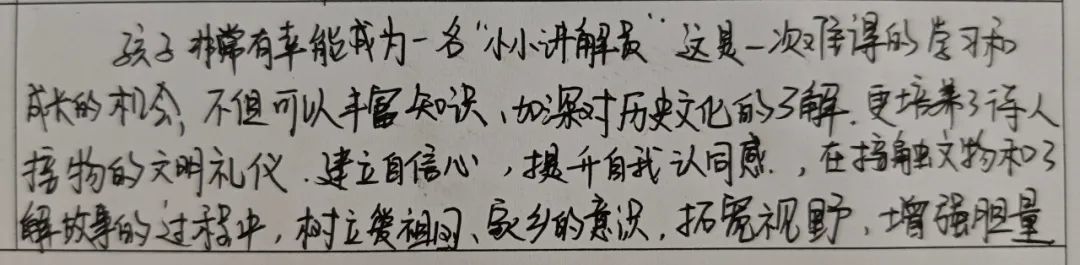 孩子非常有幸能成为一名“小小讲解员”这是一次难得的学习和
成长的机会，不但可以丰富知识、加深对历史文化的了解，更培养了待人
接物的文明礼仪、建立自信心，提升自我认同感，在接触文物和了
解故事的过程中，树立爱祖国、家乡的意识，拓宽视野，增强胆量